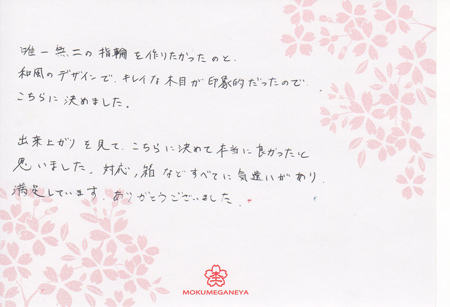 唯一無二の指輪を作りたかったのと、
和風のデザインで、キレイな木目が印象的だったので
こちらに決めました。
出来上がりを見て、こちらに決めて本当に良かったと
思いました。対応、箱などすべてに気遣いがあり、
満足しています。ありがとうございました。
MOKUMEGANEYA